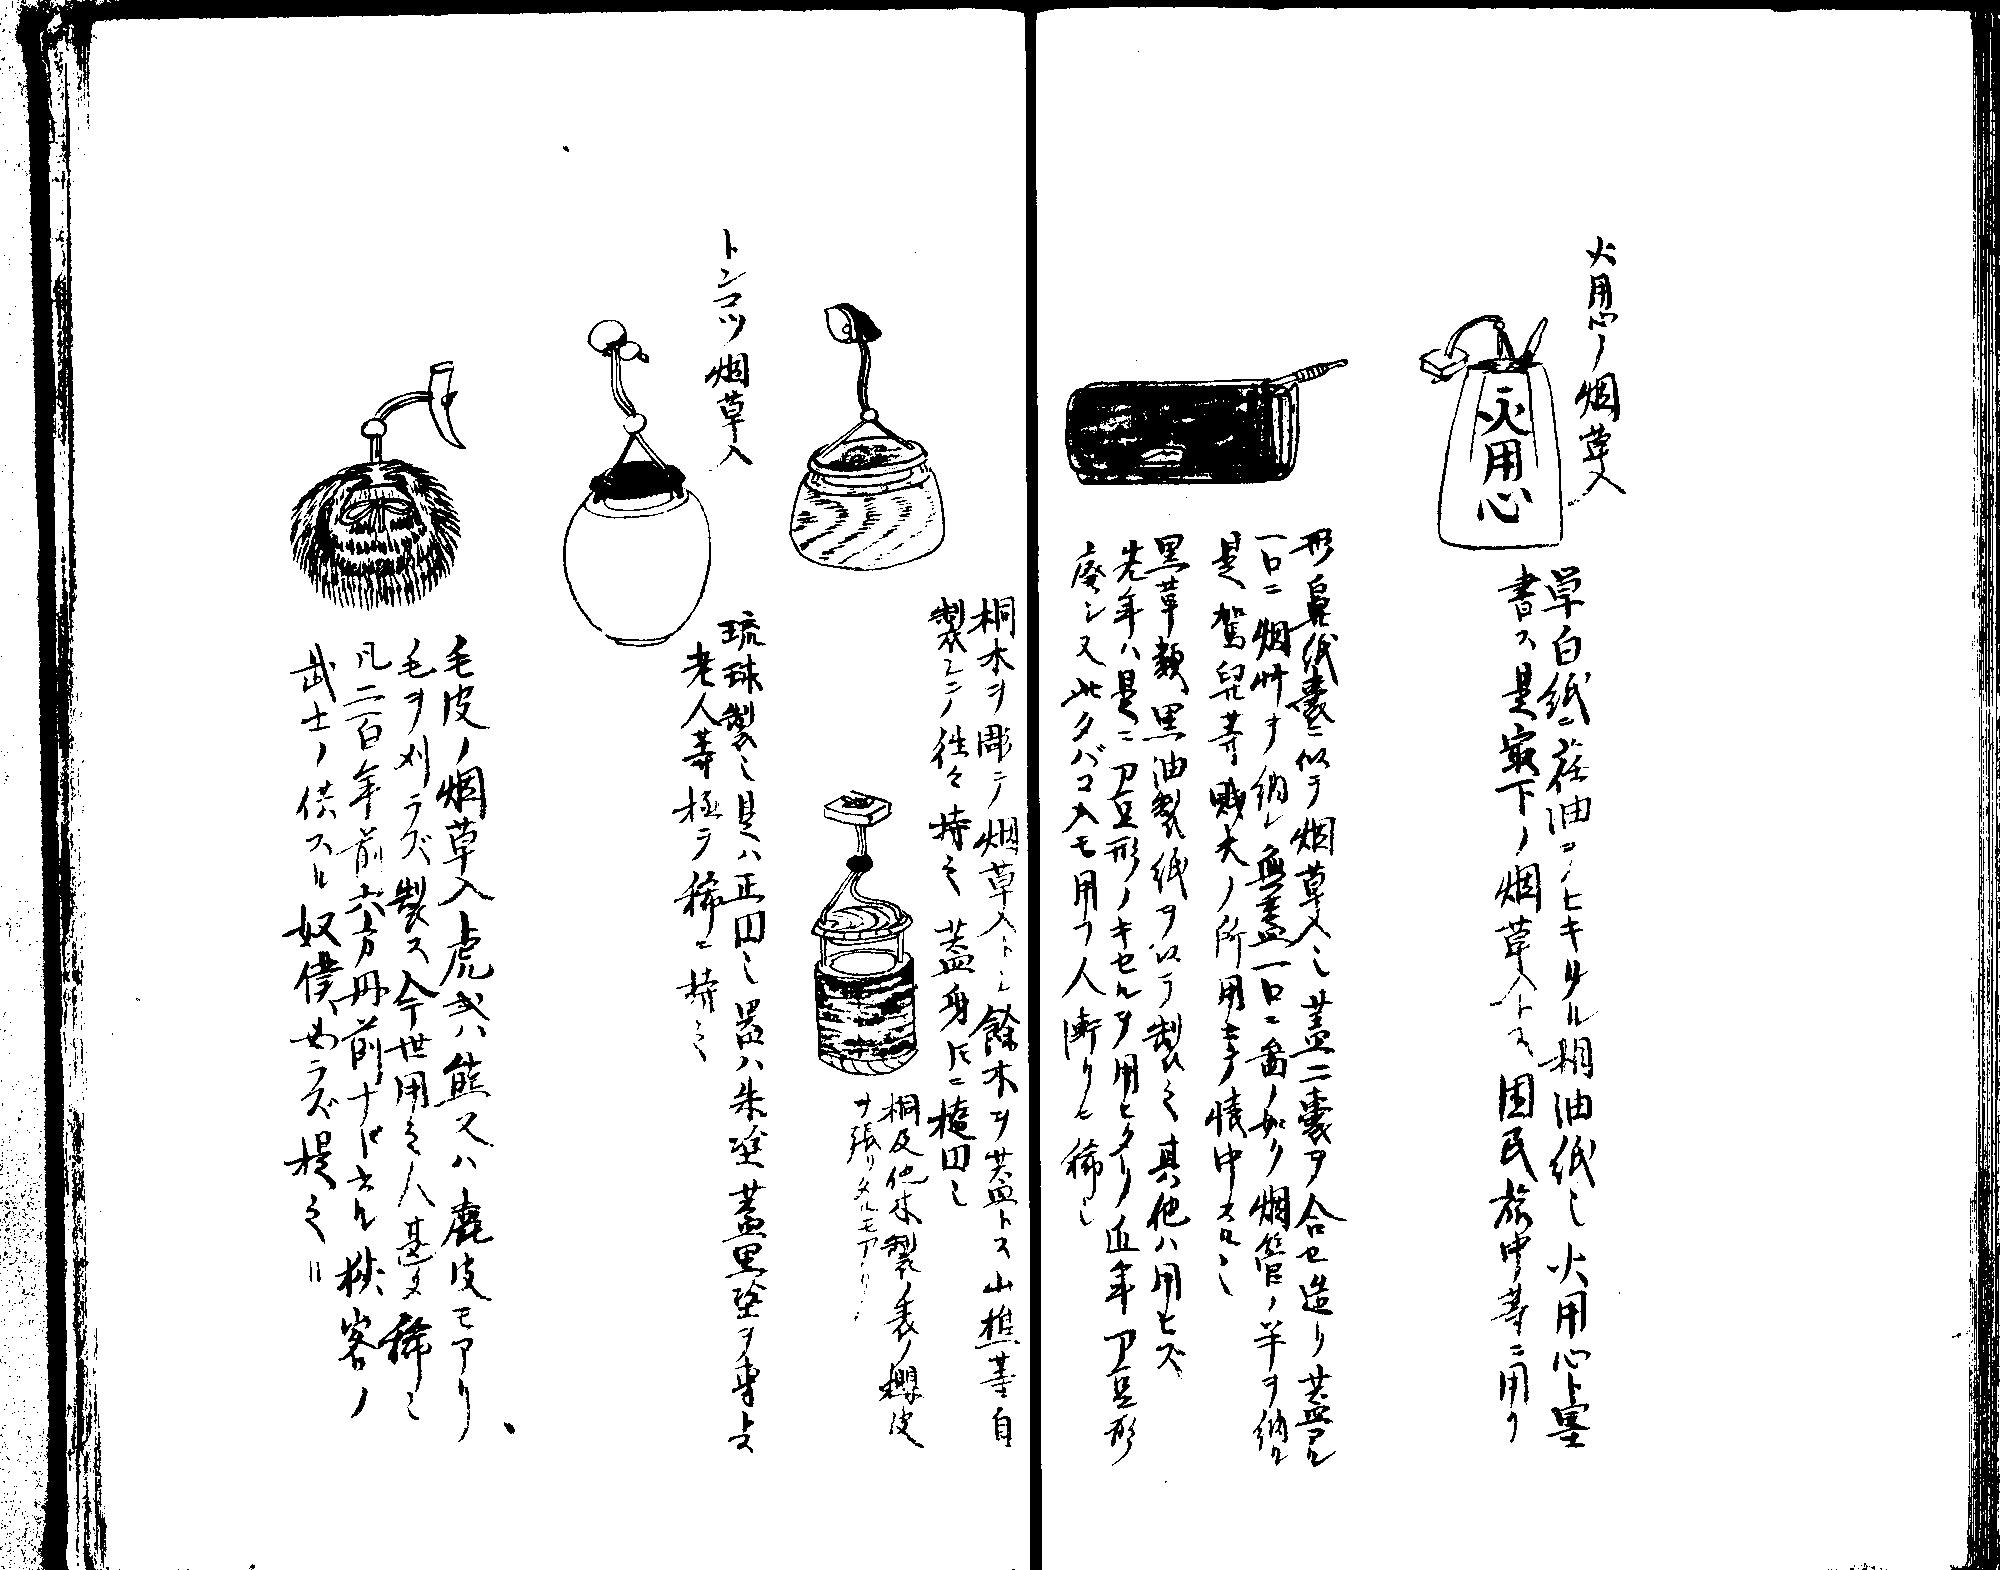 火用心ノ烟草入
火用心
単白紙ニ荏油コノヒキタル桐油紙也火用心ト墨
書ス是最下ノ烟草入トス困民旅中等ニ用フ
形鼻紙嚢ニ似テ烟草入也蓋ニ嚢ヲ合セ造リ蓋アル
一口ニ烟艸ヲ納レ無蓋一口ニ図ノ如ク烟管ノ半ヲ納ル
是駕舁等賤夫ノ所用専ラ懐中スル也
黒革類黒油製紙ヲ以テ製之其他ハ用ヒズ
先年ハ是ニ刀豆形ノキセルヲ用ヒタリ近年刀豆形
廃シ又此タバコ入モ用フ人漸クニ稀也
桐木ヲ彫テ烟草入トシ餘木ヲ蓋トス山樵等自
製シテ往々持之蓋身トモニ楕円也
桐及他木製ノ表ノ桜皮
ヲ張リタルモアリ
トンコツ烟草入
琉球製也是ハ正円也器ハ朱塗蓋黒塗ヲ専トス
老人等極テ稀ニ持之
毛皮ノ烟草入虎或ハ熊又ハ鹿皮モアリ
毛ヲ刈ラズ製ス今世用之人甚タ稀也
凡二百年前六方丹前ナド云ル狭客ノ
武士ノ供スル奴僕必ラズ提之